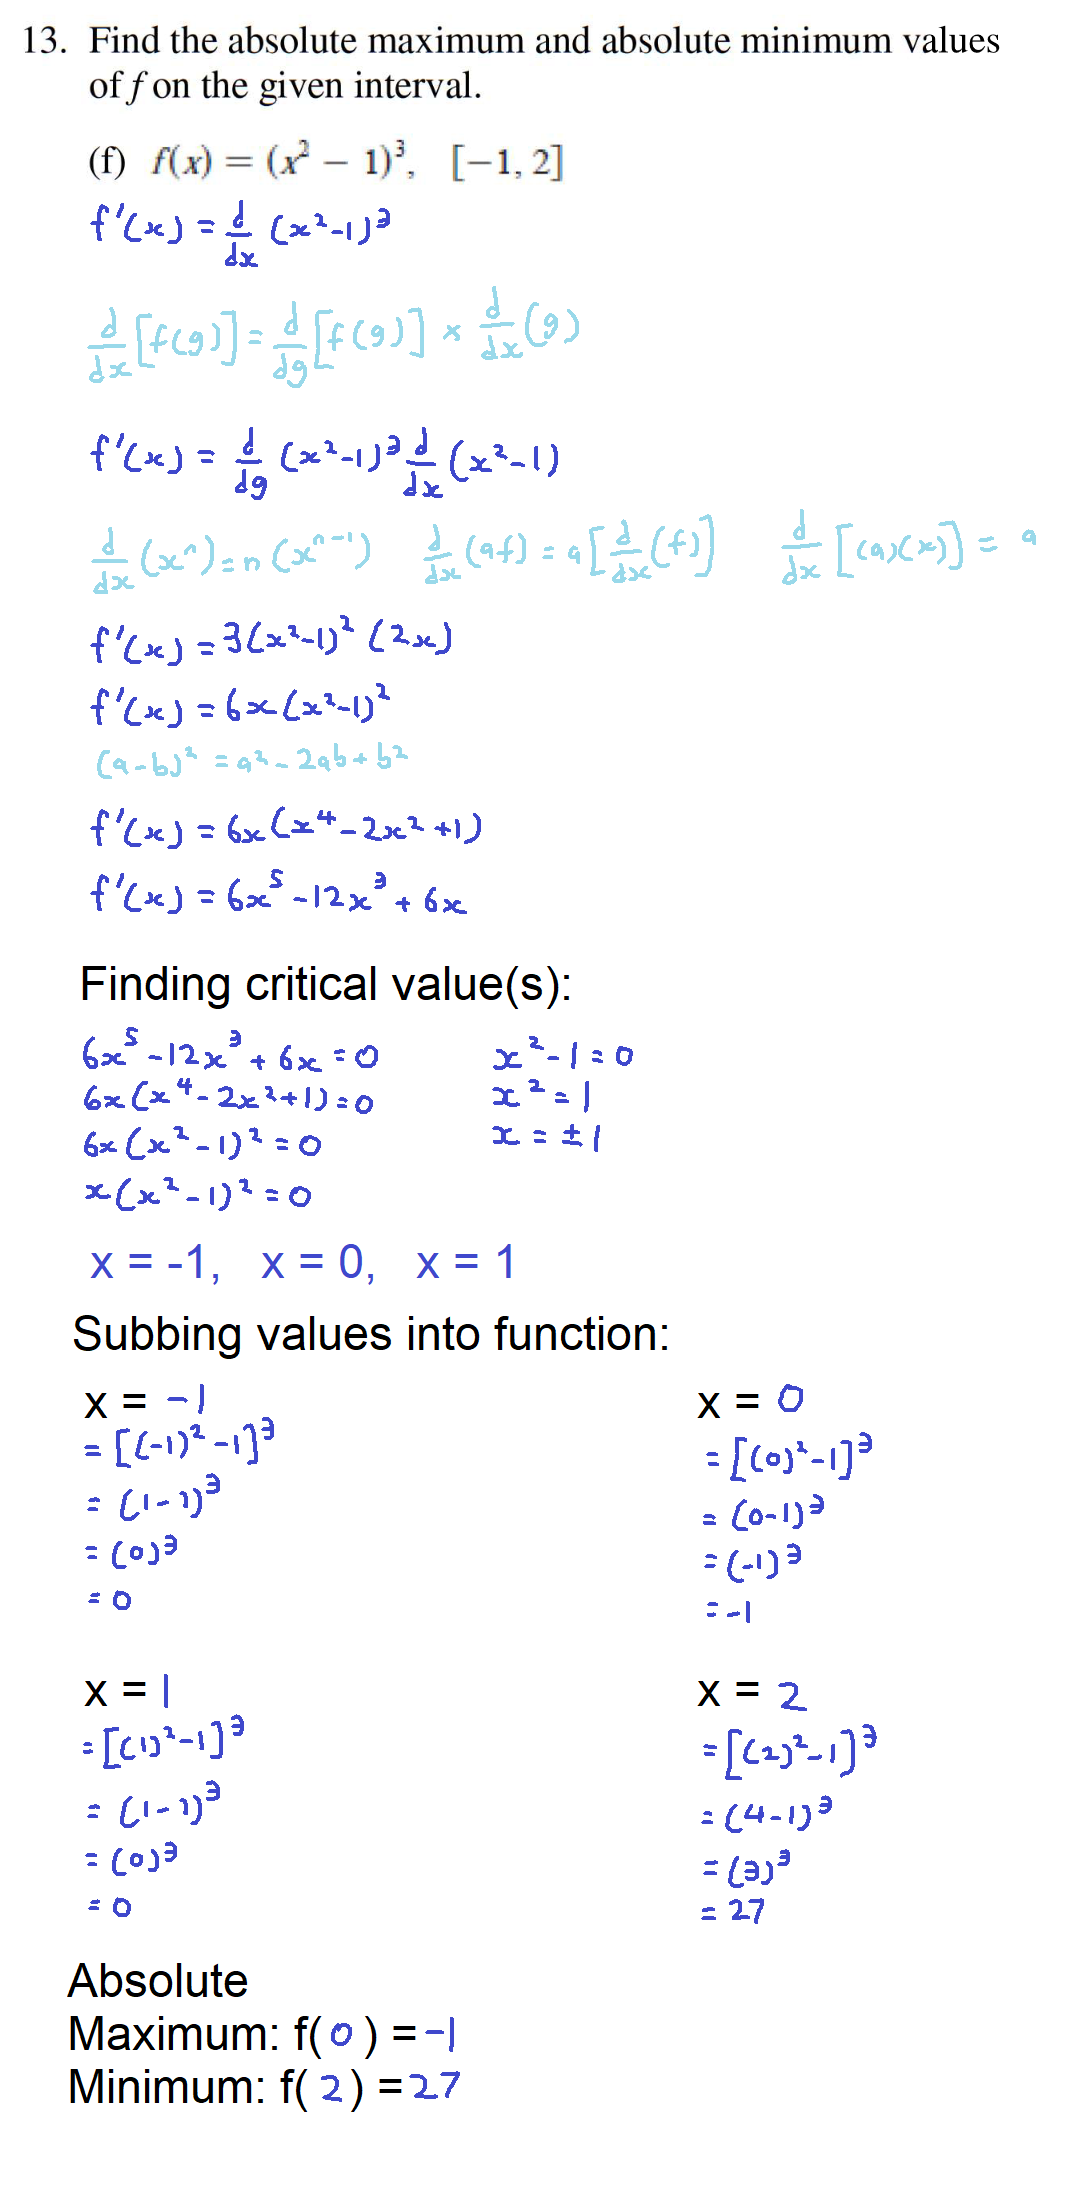 13. Find the absolute maximum and absolute minimum values
of f on the given interval.
(f) f(x) = (x² − 1)³, [−1, 2]
f'(x) = d/dx (x²-1)³
d/dx [f(g)] = d/dg [f(g)] × d/dx (g)
f'(x) = d/dg (x²-1)³ d/dx (x²-1)
d/dx (xⁿ) = n(xⁿ⁻¹) d/dx (af) = a[d/dx (f)] d/dx [(a)(x)] = a
f'(x) = 3(x²-1)² (2x)
f'(x) = 6x(x²-1)²
(a-b)² = a² - 2ab + b²
f'(x) = 6x(x⁴ - 2x² + 1)
f'(x) = 6x⁵ - 12x³ + 6x
Finding critical value(s):
6x⁵ - 12x³ + 6x = 0
6x(x⁴ - 2x² + 1) = 0
6x(x² - 1)² = 0
x(x² - 1)² = 0
x² - 1 = 0
x² = 1
x = ±1
x = -1, x = 0, x = 1
Subbing values into function:
x = -1
= [(-1)² - 1]³
= (1 - 1)³
= (0)³
= 0
x = 0
= [(0)² - 1]³
= (0-1)³
= (-1)³
= -1
x = 1
= [(1)² - 1]³
= (1 - 1)³
= (0)³
= 0
x = 2
= [(2)² - 1]³
= (4 - 1)³
= (3)³
= 27
Absolute
Maximum: f(0) = -1
Minimum: f(2) = 27